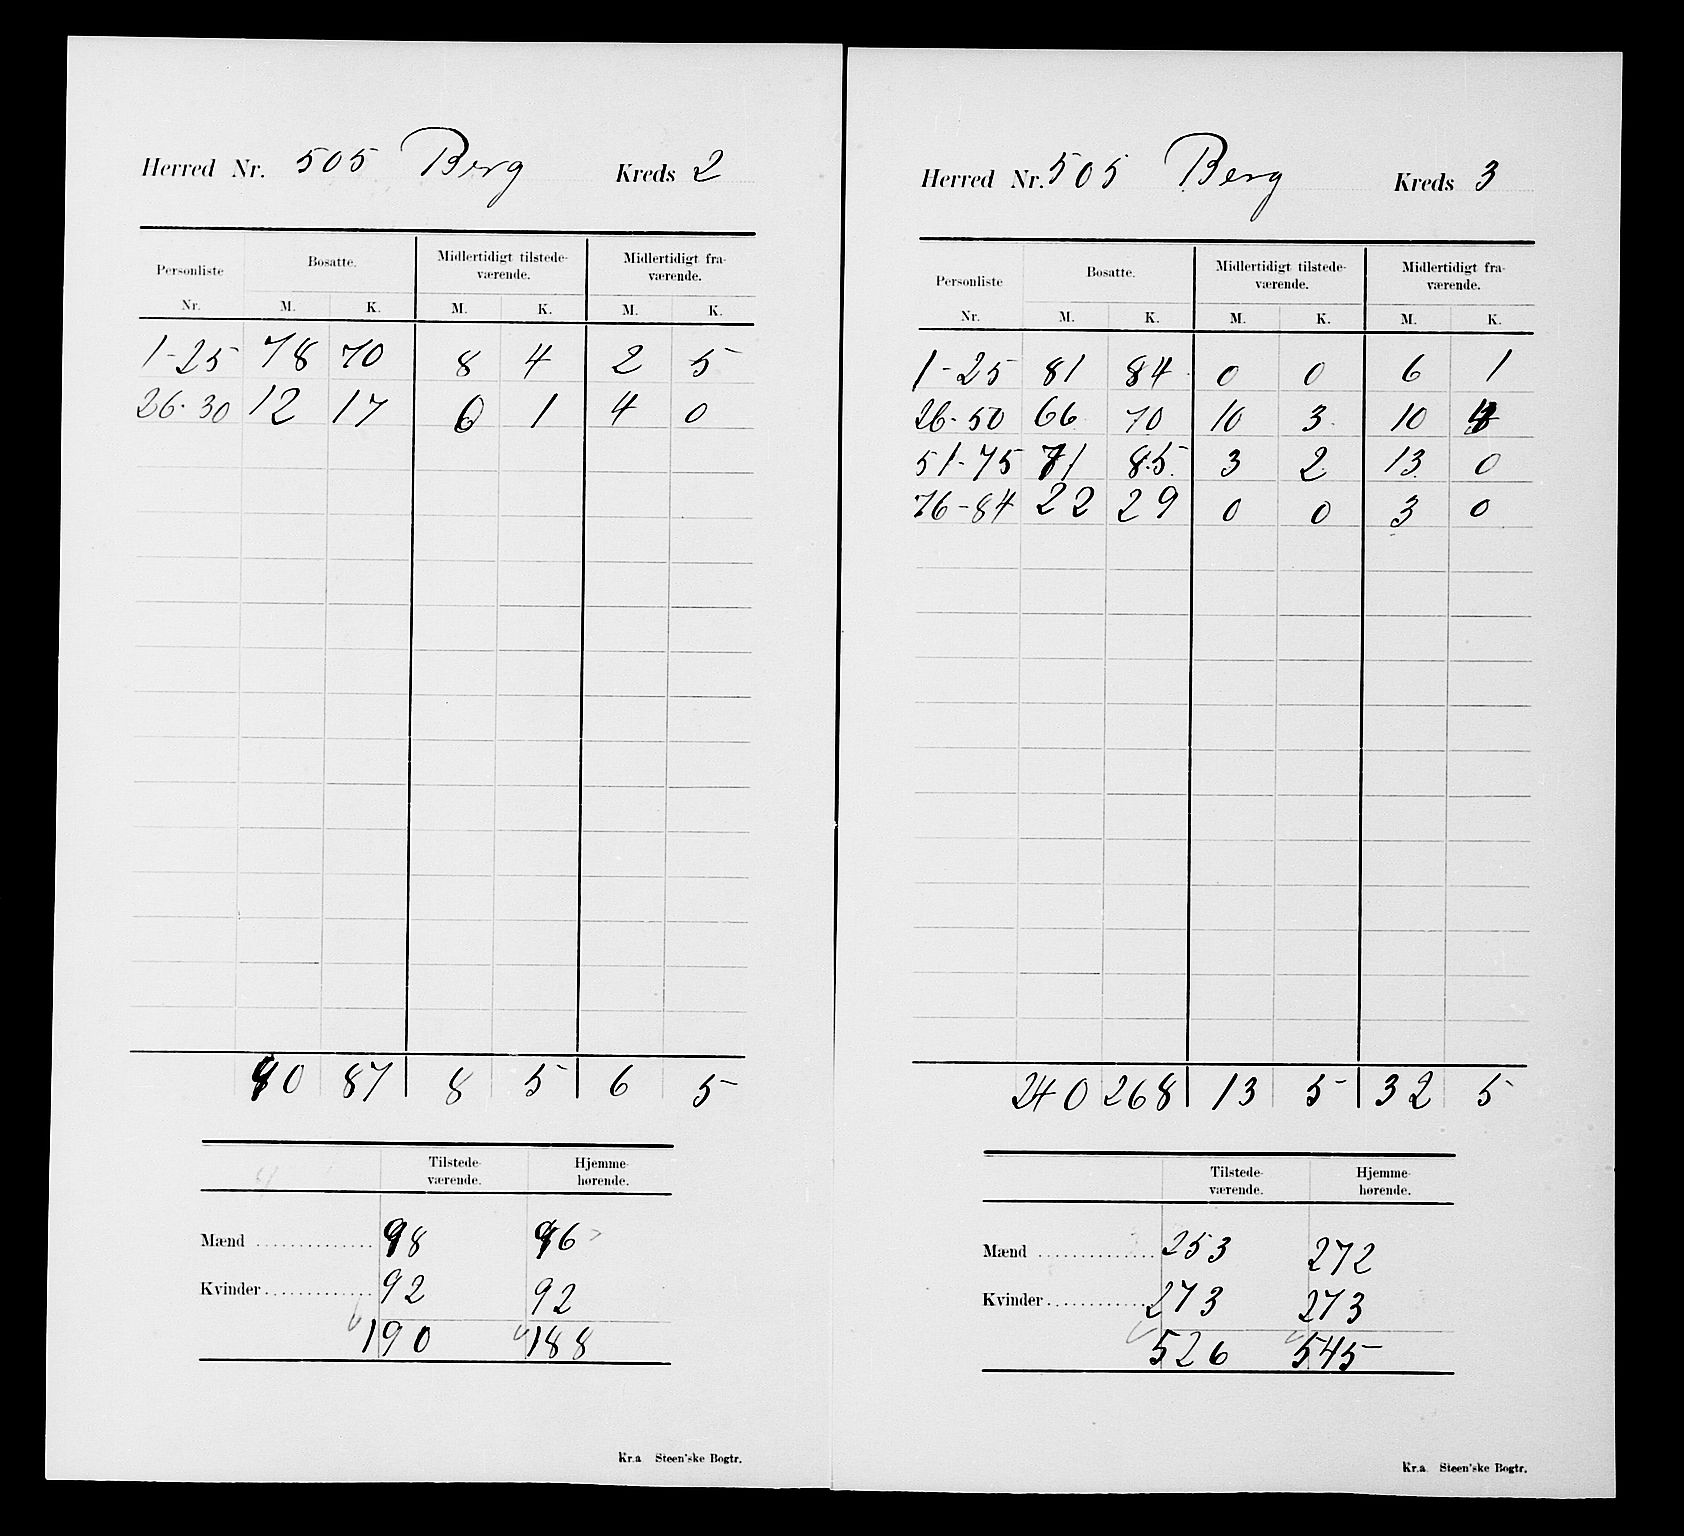 Herred Nr. 505 Berg Kreds 2
Personliste Bosatte. Midlertidigt tilstede- Midlertidigt fra-
værende. værende.
Nr. M. K. M. K. M. K.
1-25 78 70 8 4 2 5
26-30 12 17 0 1 4 0
90 87 8 5 6 5
Tilstede- Hjemme-
værende. hørende.
Mænd 98 96
Kvinder 92 92
190 188
Kr.a Steen'ske Bogtr.
Herred Nr. 505 Berg Kreds 3
Personliste Bosatte. Midlertidigt tilstede- Midlertidigt fra-
værende. værende.
Nr. M. K. M. K. M. K.
1-25 81 84 0 0 6 1
26-50 66 70 10 3 10 4
51-75 71 85 3 2 13 0
76-84 22 29 0 0 3 0
240 268 13 5 32 5
Tilstede- Hjemme-
værende. hørende.
Mænd 253 272
Kvinder 273 273
526 545
Kr.a Steen'ske Bogtr.